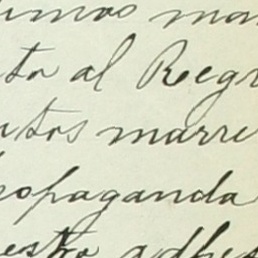 timos mar
to al Regr
utos marre
ropaganda
esto adhes